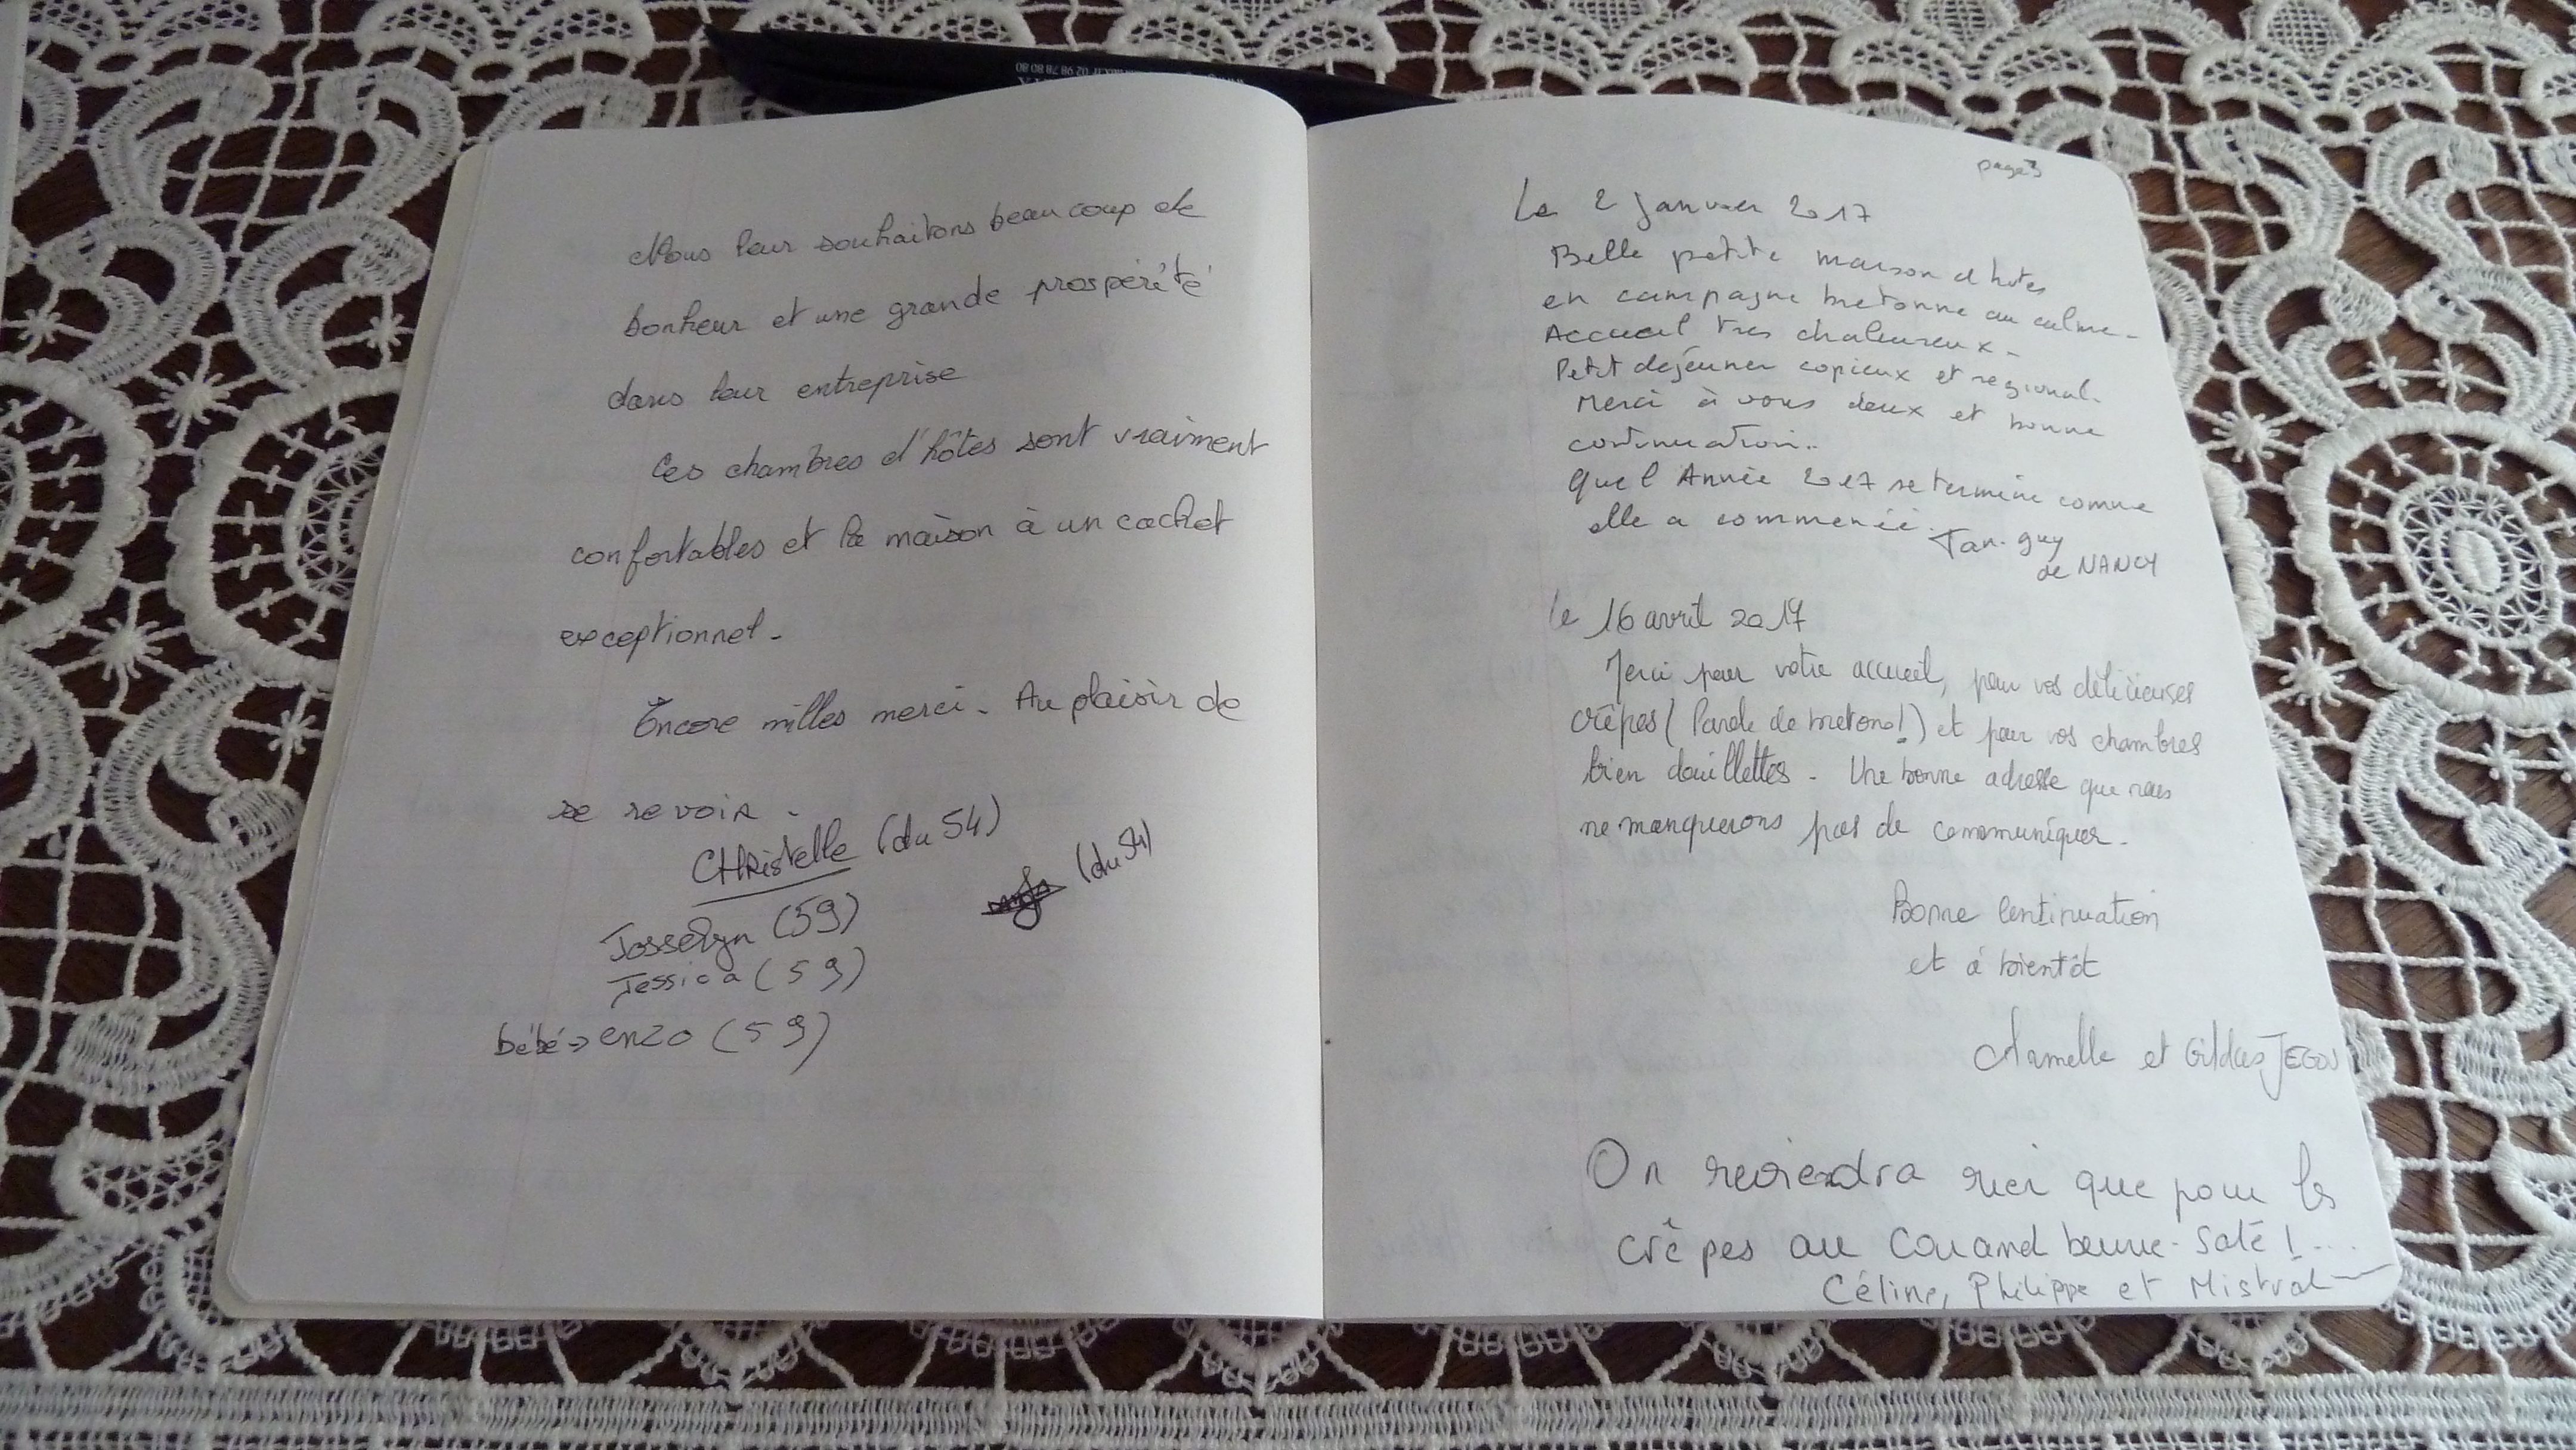 02 98 78 80 80
Nous leur souhaitons beaucoup de
bonheur et une grande prospérité
dans leur entreprise
Ces chambres d'hôtes sont vraiment
confortables et la maison à un cachet
exceptionnel.
Encore milles merci. Au plaisir de
se revoir.
CHRistelle (du 54)
(du 54)
Josselyn (59)
Jessica (59)
bébé => enzo (59)
page 3
Le 2 Janvier 2017
Belle petite maison d hotes
en campagne bretonne au calme.
Accueil tres chaleureux.
Petit dejeuner copieux et regional.
Merci à vous deux et bonne
continuation..
Que l Année 2017 se termine comme
elle a commencéé.
Tan.guy
de NANCY
le 16 avril 2017
Merci pour votre accueil, pour vos délicieuses
crêpes (Parole de bretons!) et pour vos chambres
bien douillettes. Une bonne adresse que nous
ne manquerons pas de communiquer.
Bonne Continuation
et à bientôt
Armelle et Gildas JEGOU
On reviendra rien que pour les
crêpes au beurre-salé!....
Céline, Philippe et Mistral